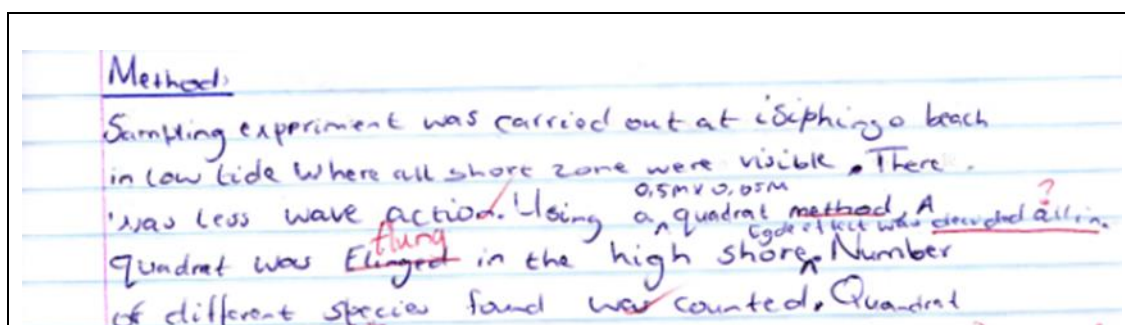 Method:
Sampling experiment was carried out at isiphingo beach
in low tide where all shore zone were visible. There
was less wave action. Using a quadrat method. A
0,5m x 0,05m
?
Egde effect was decided all in.
flung
quadrat was Flinged in the high shore. Number
of different species found was counted. Quandrat